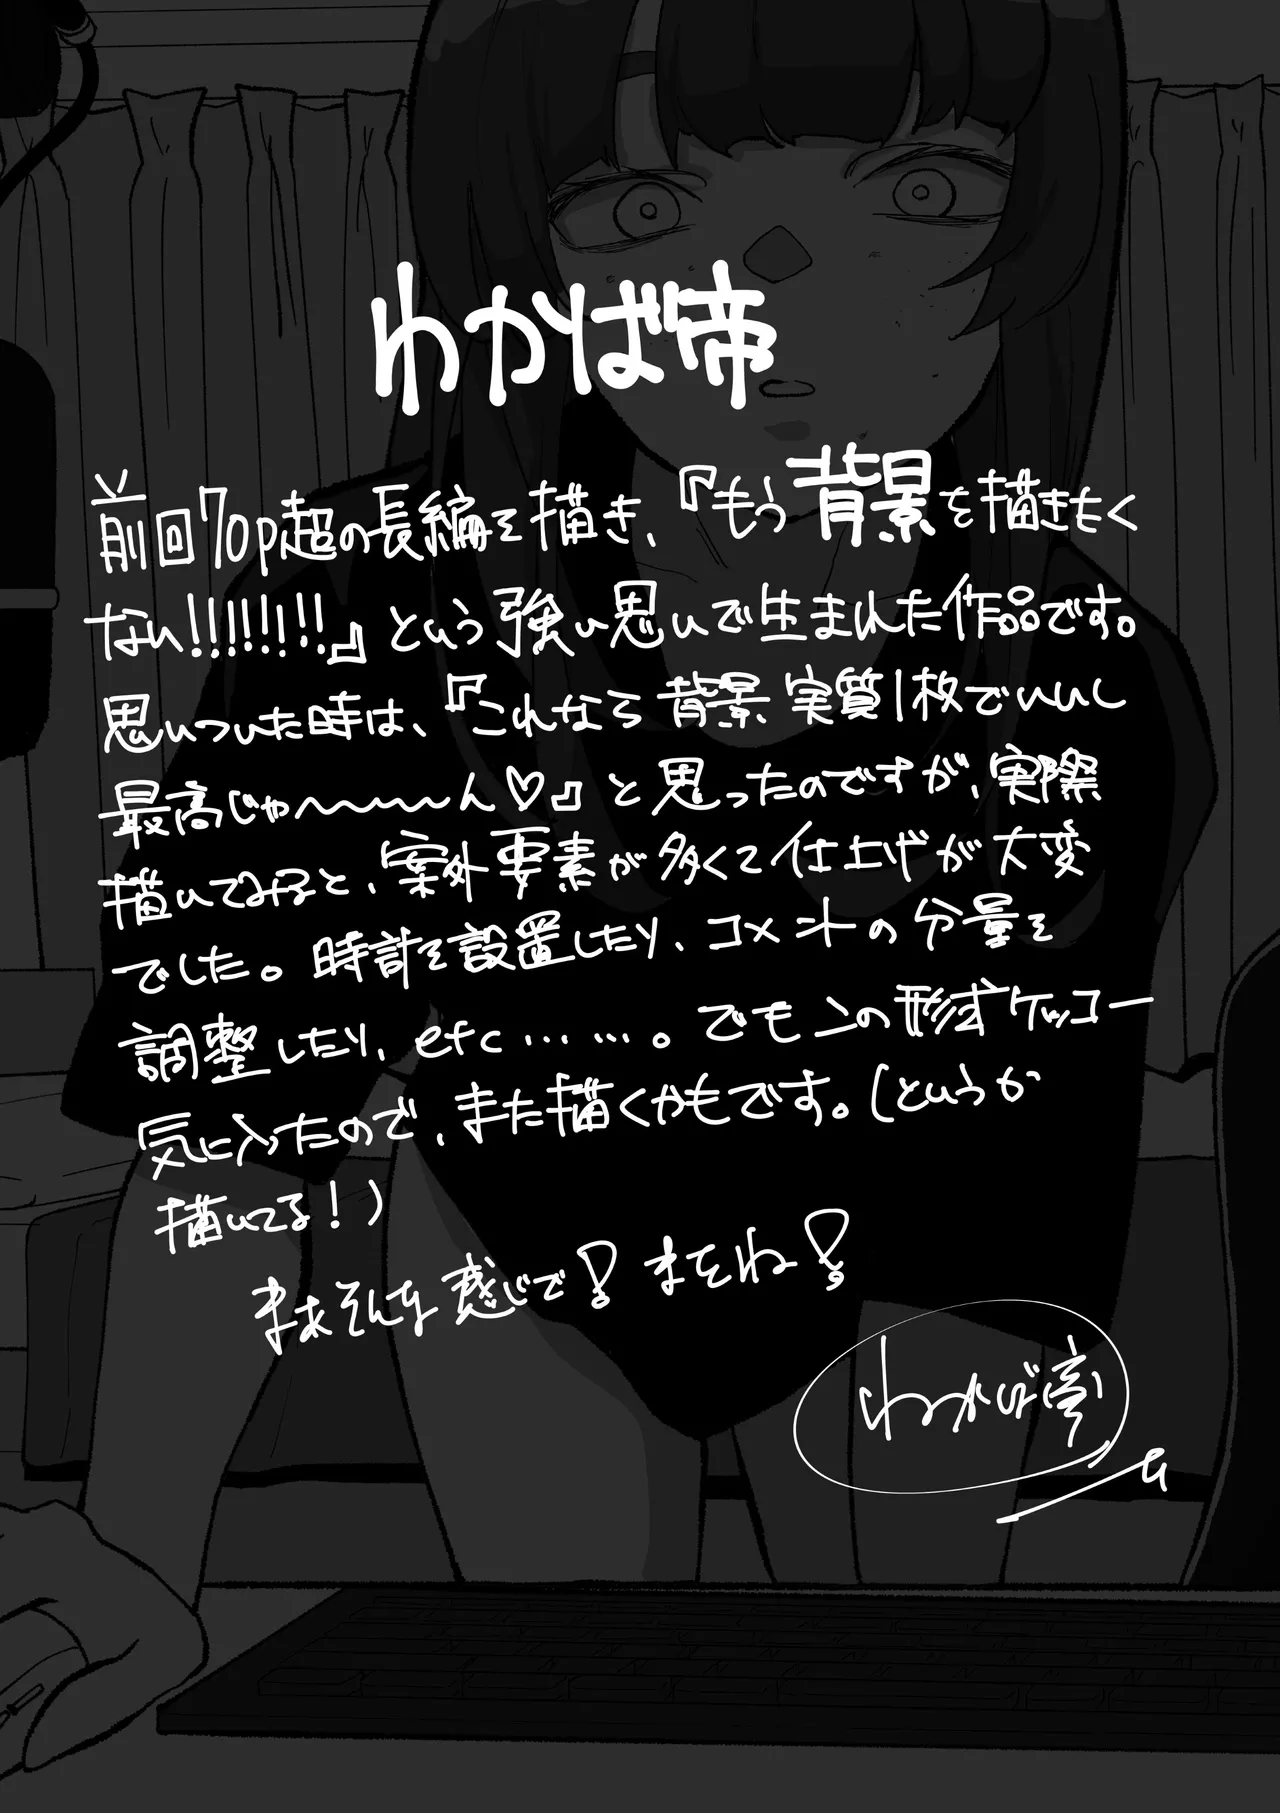 わかば帝
前回70p超の長編を描き、『もう背景を描きたく
ない!!!!!!!!』という強い思いで生まれた作品です。
思いついた時は、『これなら背景実質1枚でいいし
最高じゃ〜〜〜ん♡』と思ったのですが、実際
描いてみると、案外要素が多くて仕上げが大変
でした。時計を設置したり、コメントの分量を
調整したり、etc……。でもこの形式ケッコー
気に入ったので、また描くかもです。(というか
描いてる!)
まあそんな感じで! またね!
わかば帝